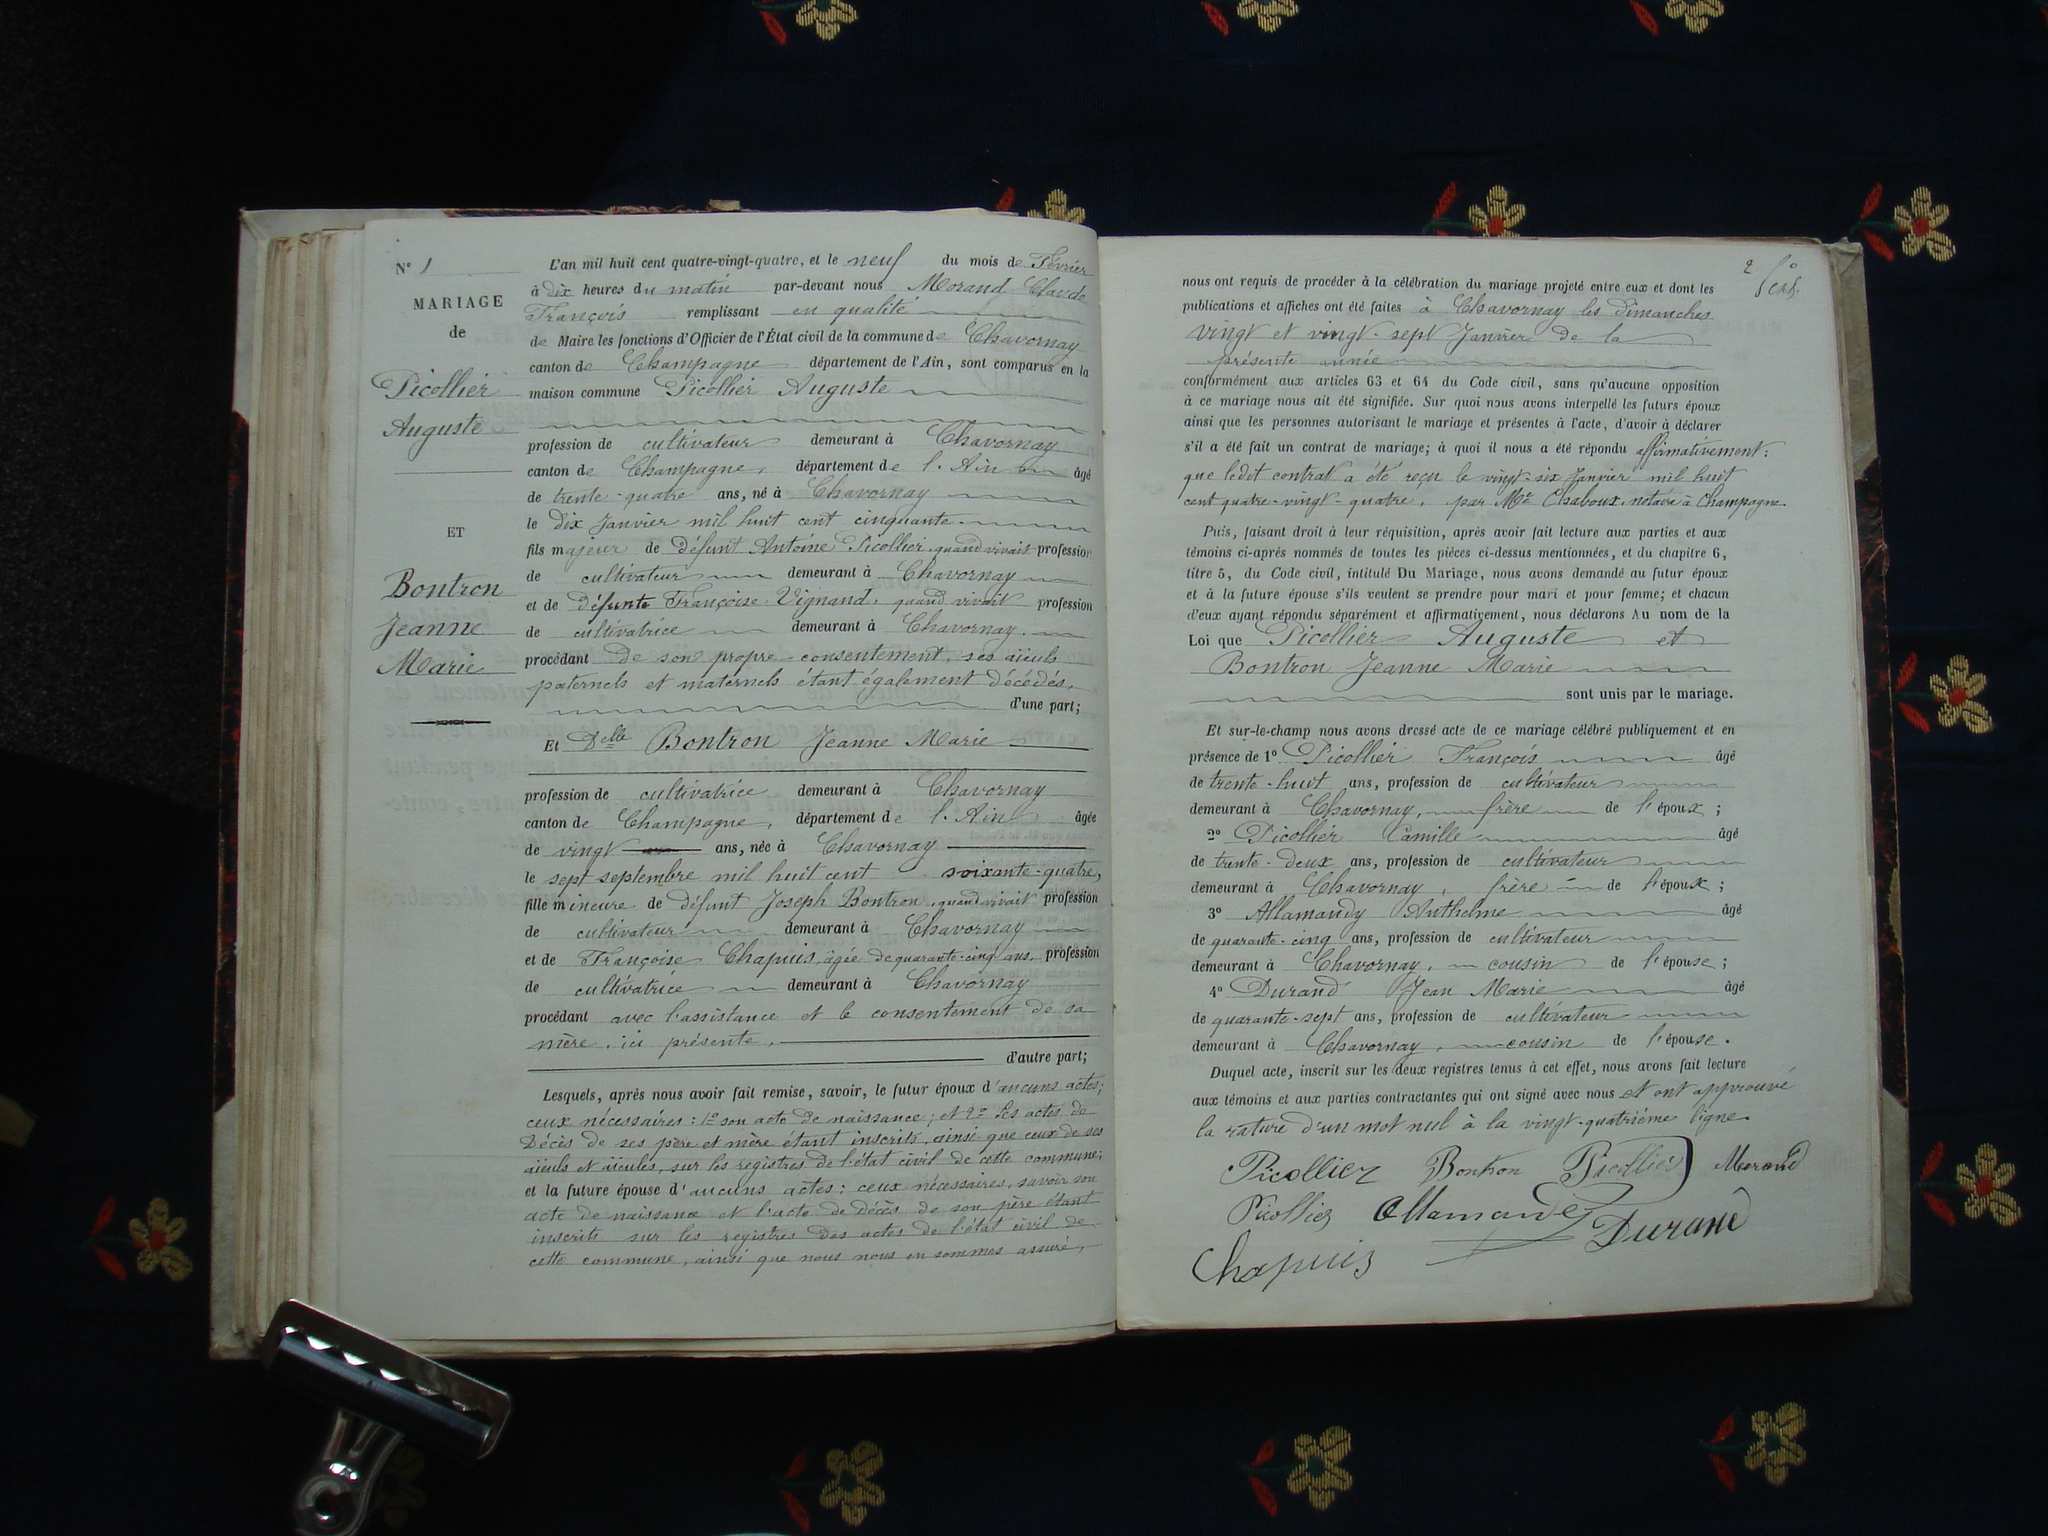 N° 1
MARIAGE
de
Picollier
Auguste
ET
Bontron
Jeanne
Marie
L'an mil huit cent quatre-vingt-quatre, et le neuf du mois de Février
à dix heures du matin par-devant nous Morand Claude
François remplissant en qualité
de Maire les fonctions d'Officier de l'État civil de la commune de Chavornay
canton de Champagne département de l'Ain, sont comparus en la
maison commune Picollier Auguste
profession de cultivateur demeurant à Chavornay
canton de Champagne, département de l'Ain âgé
de trente-quatre ans, né à Chavornay
le dix Janvier mil huit cent cinquante
fils majeur de défunt Antoine Picollier, quand vivait profession
de cultivateur demeurant à Chavornay
et de défunte Françoise Vignand, quand vivait profession
de cultivatrice demeurant à Chavornay.
procédant de son propre consentement, ses aïeuls
paternels et maternels étant également décédés,
d'une part;
Et Delle Bontron Jeanne Marie
profession de cultivatrice demeurant à Chavornay
canton de Champagne, département de l'Ain âgée
de vingt ans, née à Chavornay
le sept septembre mil huit cent soixante-quatre,
fille mineure de défunt Joseph Bontron, quand vivait profession
de cultivateur demeurant à Chavornay
et de Françoise Chapuis, âgée de quarante-cinq ans, profession
de cultivatrice demeurant à Chavornay
procédant avec l'assistance et le consentement de sa
mère, ici présente,
d'autre part;
Lesquels, après nous avoir fait remise, savoir, le futur époux d'aucuns actes;
ceux nécessaires: 1° son acte de naissance; et 2° les actes de
décès de ses père et mère étant inscrits, ainsi que ceux de ses
aïeuls et aïeules, sur les registres de l'état civil de cette commune;
et la future épouse d'aucuns actes: ceux nécessaires, savoir son
acte de naissance et l'acte de décès de son père étant
inscrits sur les registres des actes de l'état civil de
cette commune, ainsi que nous nous en sommes assuré,
2
nous ont requis de procéder à la célébration du mariage projeté entre eux et dont les
publications et affiches ont été faites à Chavornay les dimanches
vingt et vingt-sept Janvier de la
présente année
conformément aux articles 63 et 64 du Code civil, sans qu'aucune opposition
à ce mariage nous ait été signifiée. Sur quoi nous avons interpellé les futurs époux
ainsi que les personnes autorisant le mariage et présentes à l'acte, d'avoir à déclarer
s'il a été fait un contrat de mariage; à quoi il nous a été répondu affirmativement:
que ledit contrat a été reçu le vingt-six Janvier mil huit
cent quatre-vingt-quatre, par Me Chaboux, notaire à Champagne
Puis, faisant droit à leur réquisition, après avoir fait lecture aux parties et aux
témoins ci-après nommés de toutes les pièces ci-dessus mentionnées, et du chapitre 6,
titre 5, du Code civil, intitulé Du Mariage, nous avons demandé au futur époux
et à la future épouse s'ils veulent se prendre pour mari et pour femme; et chacun
d'eux ayant répondu séparément et affirmativement, nous déclarons Au nom de la
Loi que Picollier Auguste et
Bontron Jeanne Marie
sont unis par le mariage.
Et sur-le-champ nous avons dressé acte de ce mariage célébré publiquement et en
présence de 1° Picollier François âgé
de trente-huit ans, profession de cultivateur
demeurant à Chavornay, frère de l'époux;
2° Picollier Camille âgé
de trente-deux ans, profession de cultivateur
demeurant à Chavornay, frère de l'époux;
3° Allamandy Anthelme âgé
de quarante-cinq ans, profession de cultivateur
demeurant à Chavornay, cousin de l'épouse;
4° Durand Jean Marie âgé
de quarante-sept ans, profession de cultivateur
demeurant à Chavornay, cousin de l'épouse.
Duquel acte, inscrit sur les deux registres tenus à cet effet, nous avons fait lecture
aux témoins et aux parties contractantes qui ont signé avec nous et ont approuvé
la rature d'un mot nul à la vingt-quatrième ligne
Picollier Bontron Picollier Morand
Picollier Allamandy
Durand
Chapuis